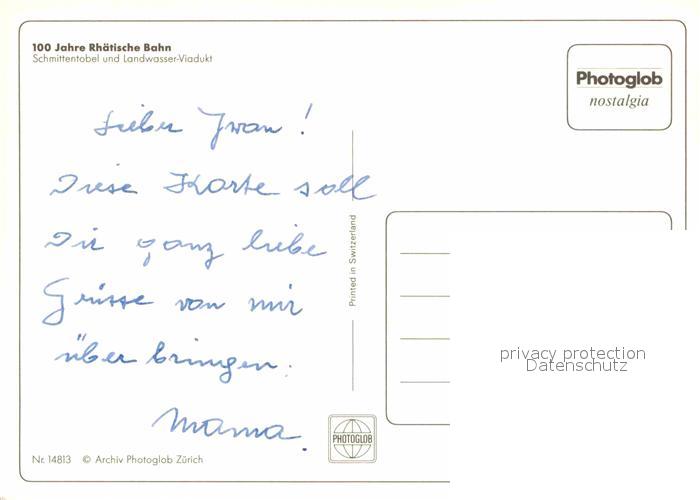 100 Jahre Rhätische Bahn
Schmittentobel und Landwasser-Viadukt
Photoglob
nostalgia
Lieber Ywan!
Diese Karte soll
Dir ganz liebe
Grüsse von mir
über bringen.
Mama.
Printed in Switzerland
privacy protection
Datenschutz
PHOTOGLOB
Nr. 14813 © Archiv Photoglob Zürich